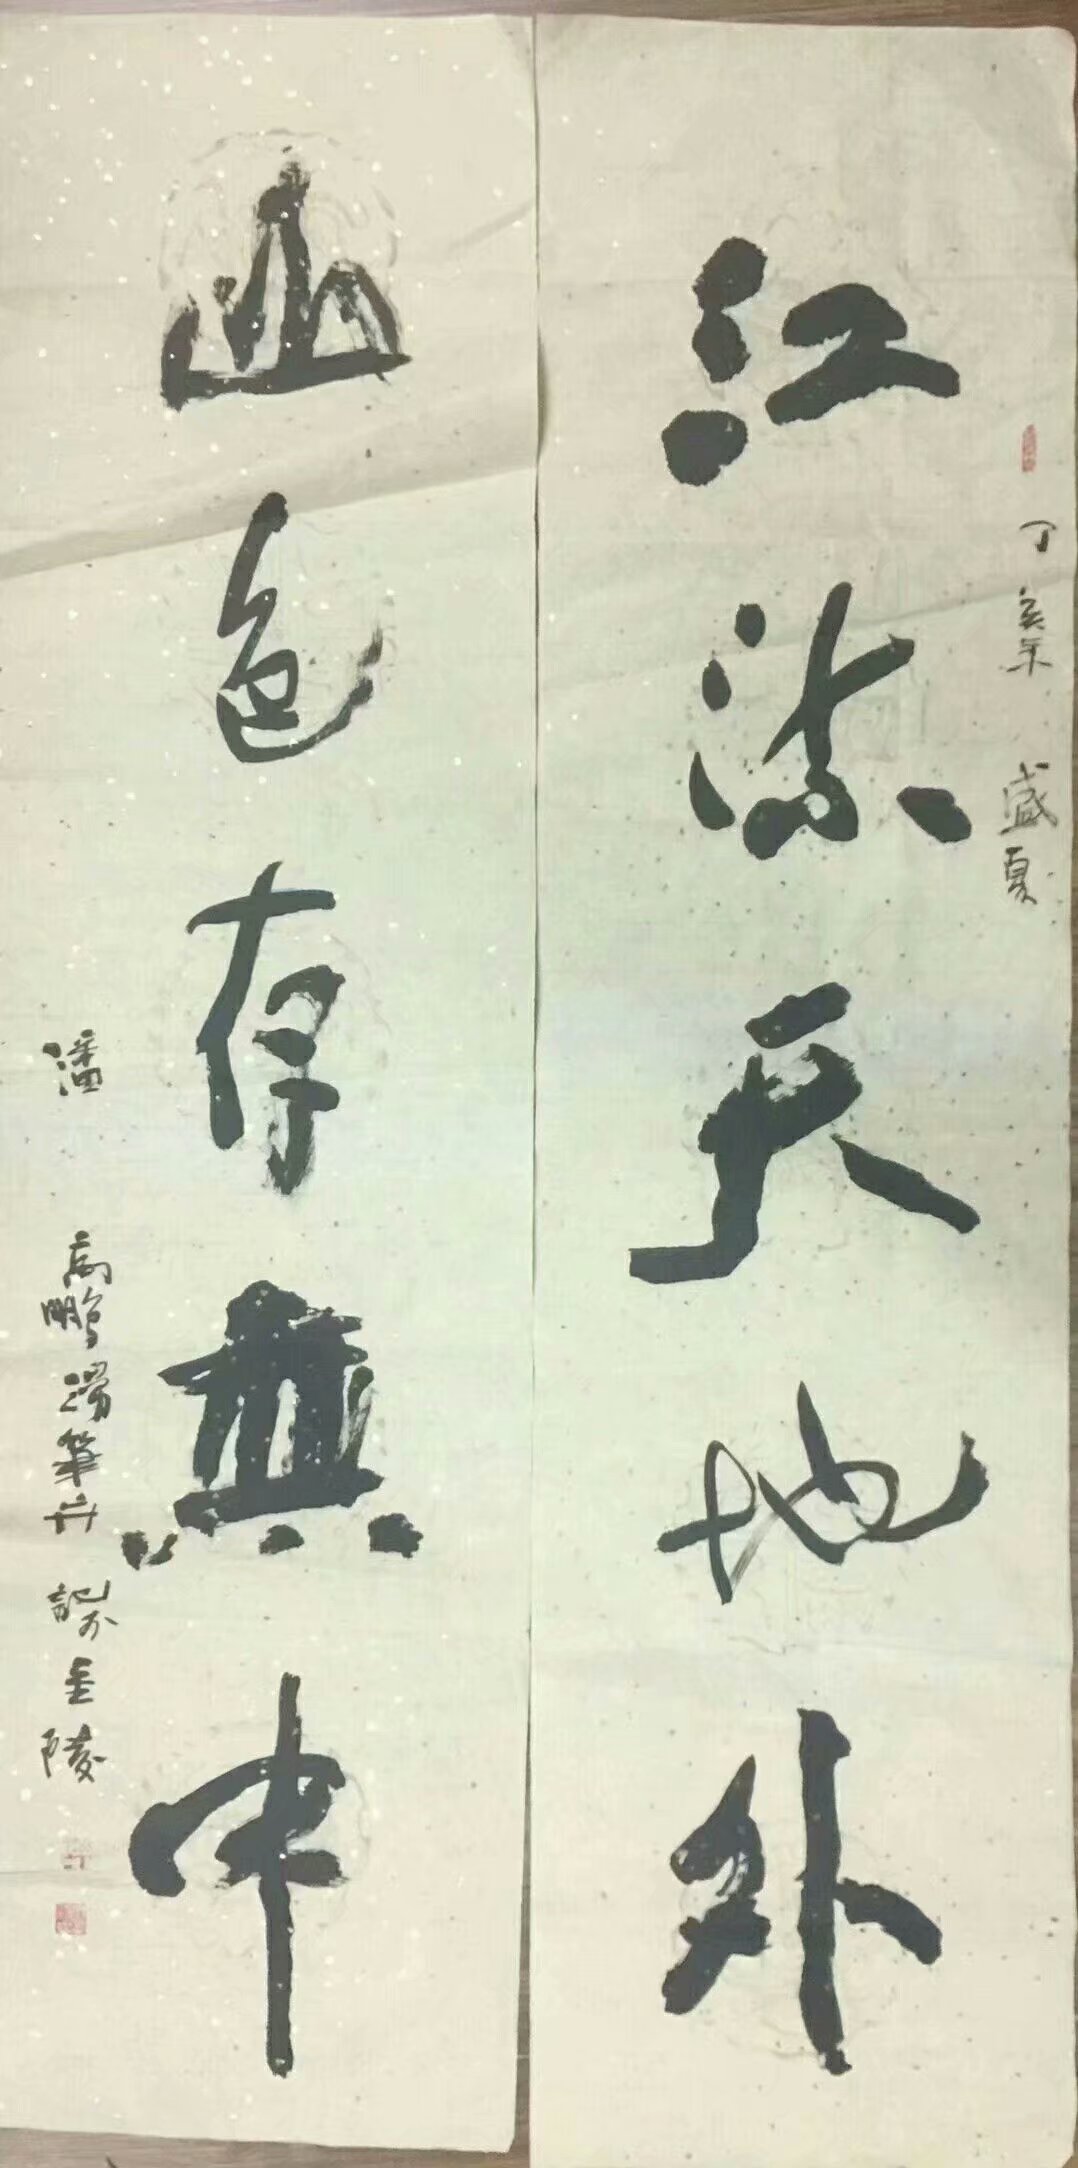 丁亥年 盛夏
江流天地外
山色存無中
潘 高鵬 筆并 記 金陵